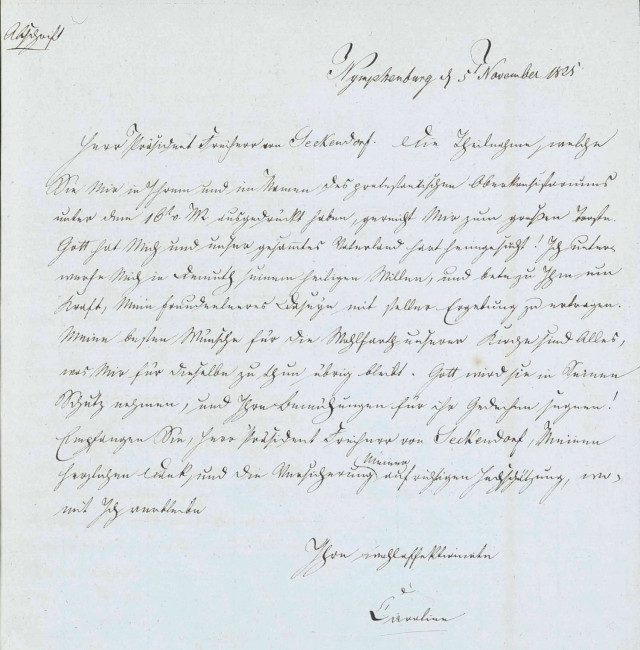 Abschrift
Nymphenburg d 5t November 1825
Herr Präsident Freiherr von Seckendorf. Die Theilnahme, welche
Sie Mir in Ihrem und im Namen des protestantischen Oberkonsistoriums
unter dem 16t v. M. ausgedrückt haben, gereicht Mir zum großen Troste.
Gott hat Mich und unser gesamtes Vaterland hart heimgesucht! Ich unter-
werfe Mich in Demuth seinem heiligen Willen, und bete zu Ihm um
Kraft, Mein freudenleeres Daseyn mit stiller Ergebung zu ertragen.
Meine besten Wünsche für die Wohlfarth unserer Kirche sind Alles,
was Mir für dieselbe zu thun übrig bleibt. Gott wird sie in Seinen
Schutz nehmen, und Ihre Bemühungen für ihr Gedeihen segnen!
Empfangen Sie, Herr Präsident Freiherr von Seckendorf, Meinen
herzlichen Dank, und die Versicherung Meiner aufrichtigen Hochschätzung, wo-
mit Ich verbleibe
Ihre wohlaffektionirte
Caroline